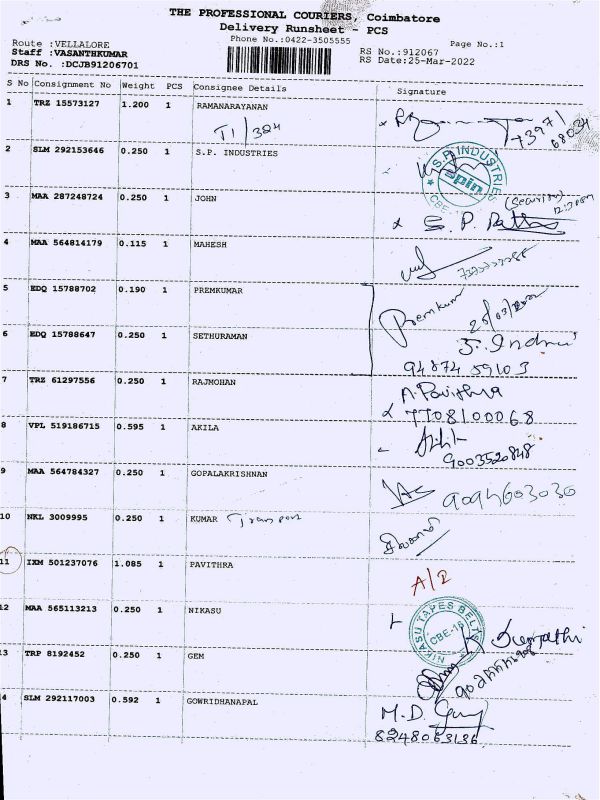 THE PROFESSIONAL COURIERS, Coimbatore
Delivery Runsheet - PCS
Phone No.:0422-3505555
Page No.:1
Route :VELLALORE
Staff :VASANTHKUMAR
DRS No. :DCJB91206701
RS No.:912067
RS Date:25-Mar-2022
S No Consignment No Weight PCS Consignee Details Signature
1 TRZ 15573127 1.200 1 RAMANARAYANAN
T1/384
73971
68034
2 SLM 292153646 0.250 1 S.P. INDUSTRIES
S.P. INDUSTRIES
spin
CBE-
3 MAA 287248724 0.250 1 JOHN
(Security)
S. P.
4 MAA 564814179 0.115 1 MAHESH
5 EDQ 15788702 0.190 1 PREMKUMAR
Premkumar
6 EDQ 15788647 0.250 1 SETHURAMAN
94874 59103
7 TRZ 61297556 0.250 1 RAJMOHAN
A. Pavithra
7708100068
8 VPL 519186715 0.595 1 AKILA
9003520848
9 MAA 564784327 0.250 1 GOPALAKRISHNAN
10 NKL 3009995 0.250 1 KUMAR Transport
11 IXM 501237076 1.085 1 PAVITHRA
A/2
12 MAA 565113213 0.250 1 NIKASU
NIKASU TAPES BELTS
CBE-16
13 TRP 8192452 0.250 1 GEM
4 SLM 292117003 0.592 1 GOWRIDHANAPAL
M.D.
8248063136